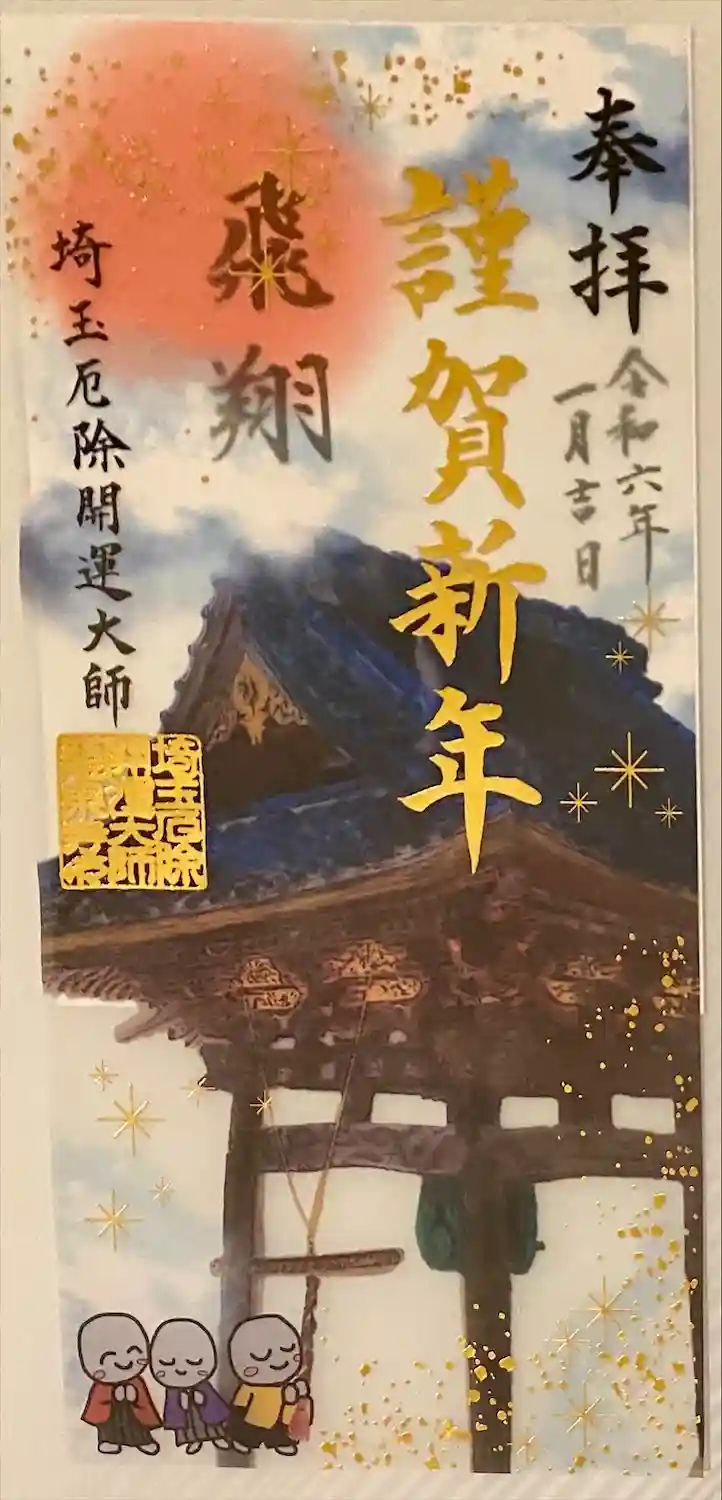 奉拝
令和六年
一月吉日
謹賀新年
飛翔
埼玉厄除開運大師
埼玉厄除
開運大師